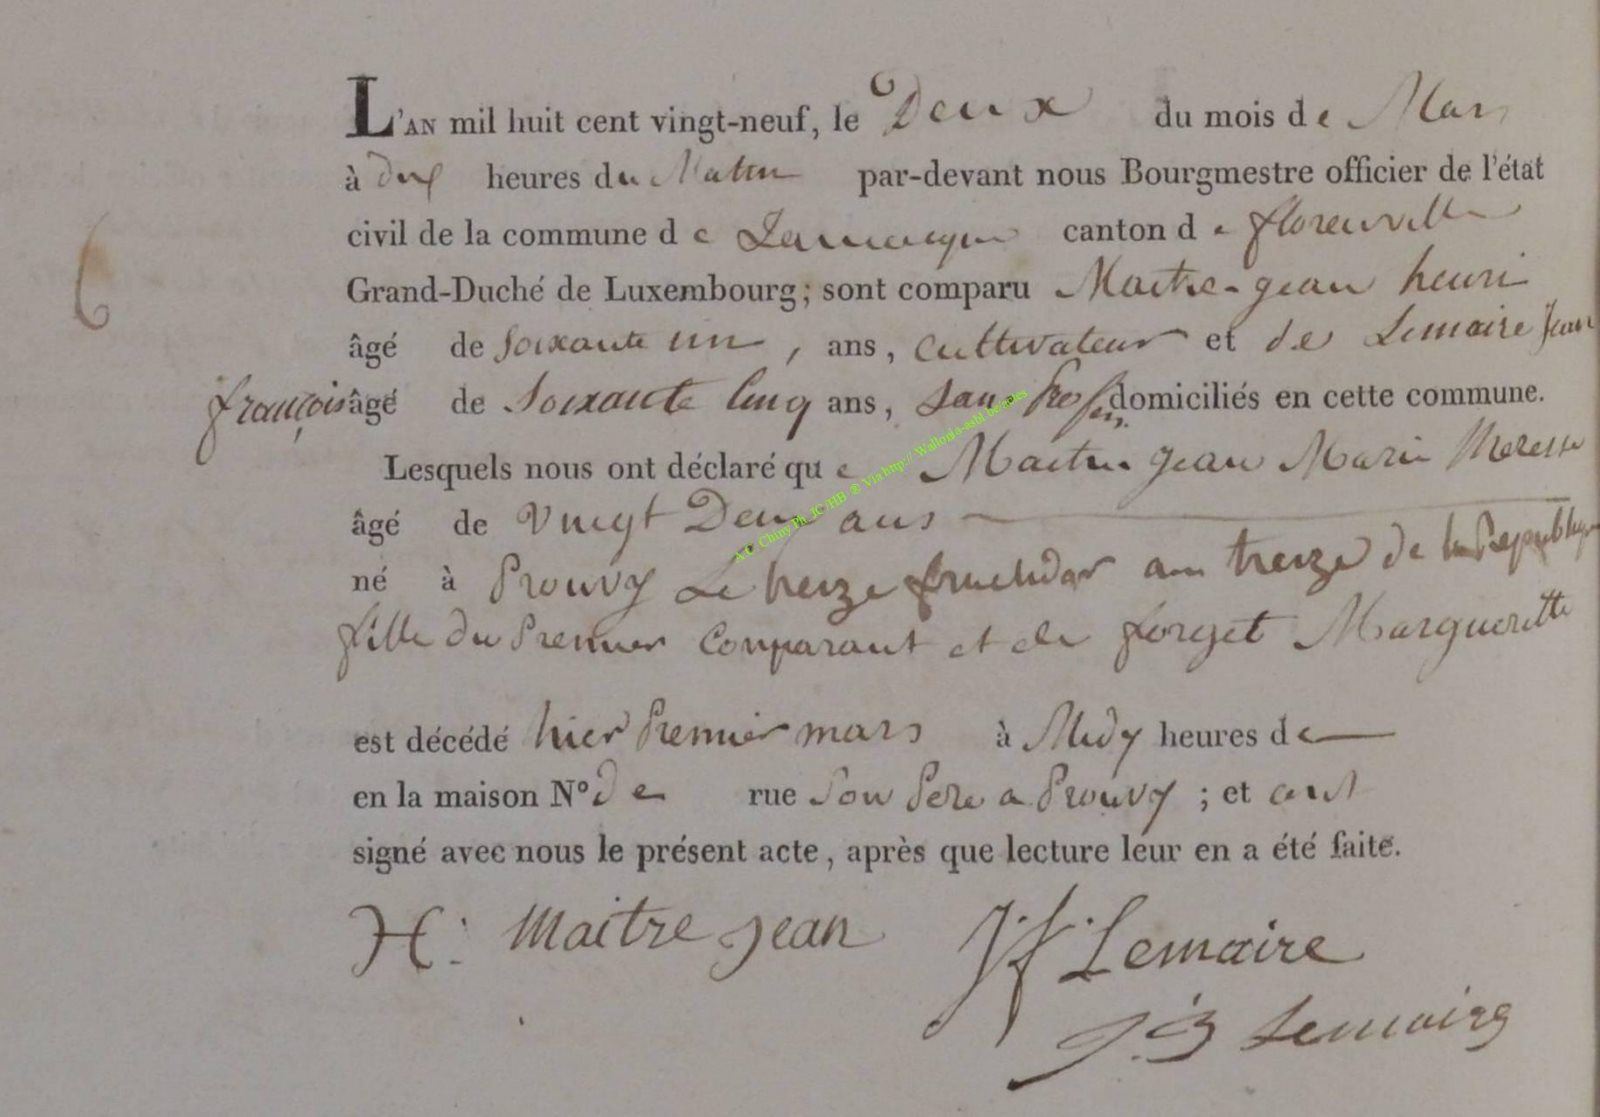 L'AN mil huit cent vingt-neuf, le Deux du mois de Mars
à dix heures du Matin par-devant nous Bourgmestre officier de l'état
civil de la commune de canton de florenville
Grand-Duché de Luxembourg; sont comparu Maitre-jean henri
âgé de soixante un, ans, cultivateur et de Lemaire Jean
françois âgé de Soixante Cinq ans, San Profon domiciliés en cette commune.
Lesquels nous ont déclaré que Maitre jean Marie therese
âgé de Vingt Deux ans
né à Prouvy Le treize fructidor an treize de la Republique
fille du Premier Comparant et de forget Margueritte
est décédé hier Premier mars à Midy heures de
en la maison N° de rue Son Pere a Prouvy; et ont
signé avec nous le présent acte, après que lecture leur en a été faite.
H: Maitre jean J: f: Lemaire
J: B Lemaire
6
A.C. Chiny Ph. JC/HB ® Via http:// Wallonia-asbl be/actes